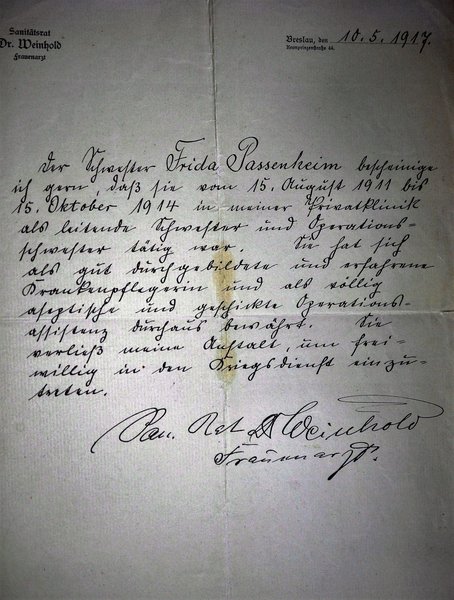 Sanitätsrat
Dr. Weinhold
Frauenarzt
Breslau, den 10.5.1917.
Kronprinzenstraße 44.
Der Schwester Frida Passenheim bescheinige
ich gern, daß sie vom 15. August 1911 bis
15. Oktober 1914 in meiner Privatklinik
als leitende Schwester und Operations-
schwester tätig war. Sie hat sich
als gut durchgebildete und erfahrene
Krankenpflegerin und als völlig
aseptische und geschickte Operations-
assistenz durchaus bewährt. Sie
verließ meine Anstalt, um frei-
willig in den Kriegsdienst einzu-
treten.
San. Rat Dr Weinhold
Frauenarzt.